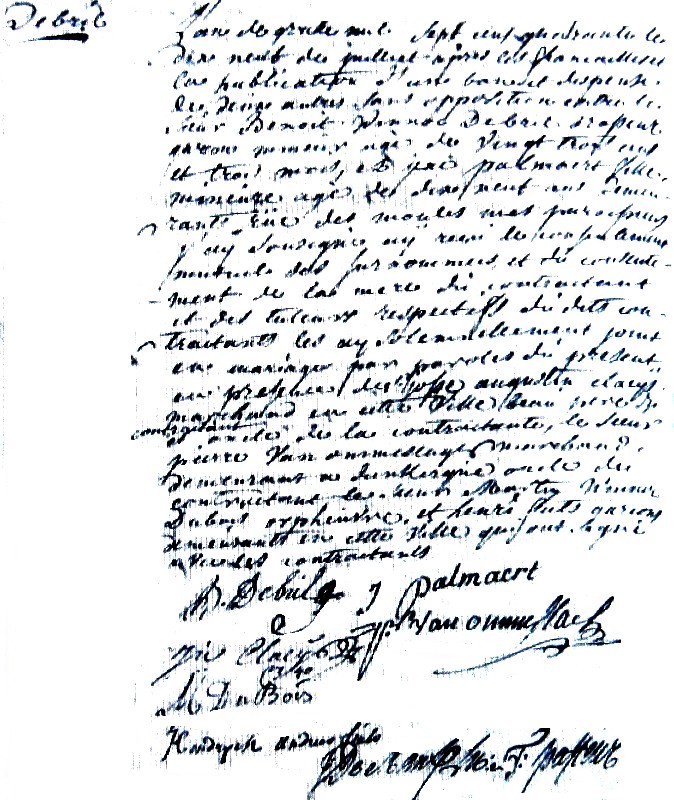 Debril
L'an de grace mil sept cent quarante le
dixe neuf de juillet après les fiancailles
la publication d'une ban et dispense
des deux autres sans opposition entre le
sieur Benoit Winnoc Debril drapeur
garcon mineur agé de vingt trois ans
et trois mois, et palmaert fille
mineure agé de dixe neuf ans demeu-
rants rüe des moules mes paroissiens
j'ay soussigné ay recu le consentement
mutuele des surnommés, et du consente-
ment de la mere du contractant
et des tuteurs respectifs du dits con-
tractants les ay solemnellement joint
en mariage par paroles du présent
en presence de Josse augustin claeys
marchand en cette ville beau pere du
contractant
et oncle de la contractante, le sieur
pierre Van ommeslaghe marchand,
demeurant a dunkerque oncle du
contractant le sieur Martin Winnoc
Dubois orphevre, et henri garcons
demeurants en cette ville qui ont signé
avec les contractants
B. Debril J palmaert
P: Van ommeslaghe
Claeys
M DuBois
Hendryck
pasteur